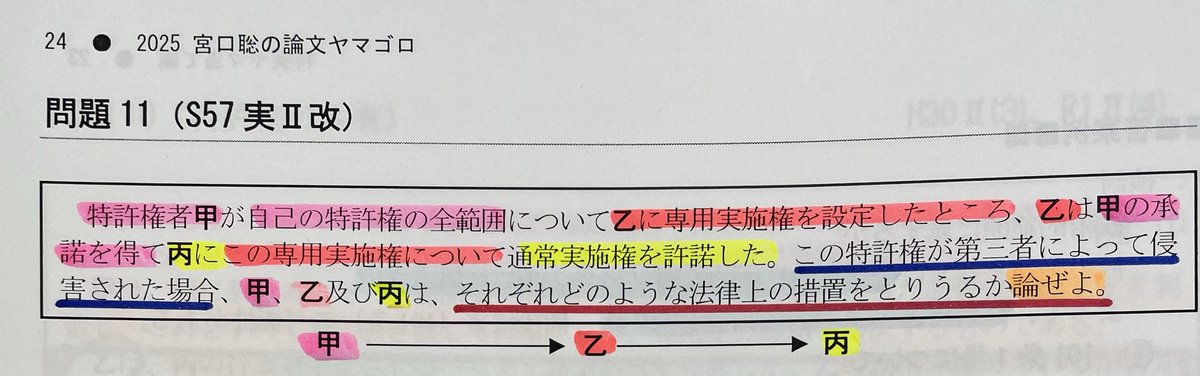 24 ● 2025 宮口聡の論文ヤマゴロ
問題 11（S57 実Ⅱ改）
特許権者甲が自己の特許権の全範囲について乙に専用実施権を設定したところ、乙は甲の承
諾を得て丙にこの専用実施権について通常実施権を許諾した。この特許権が第三者によって侵
害された場合、甲、乙及び丙は、それぞれどのような法律上の措置をとりうるか論ぜよ。
甲 → 乙 → 丙